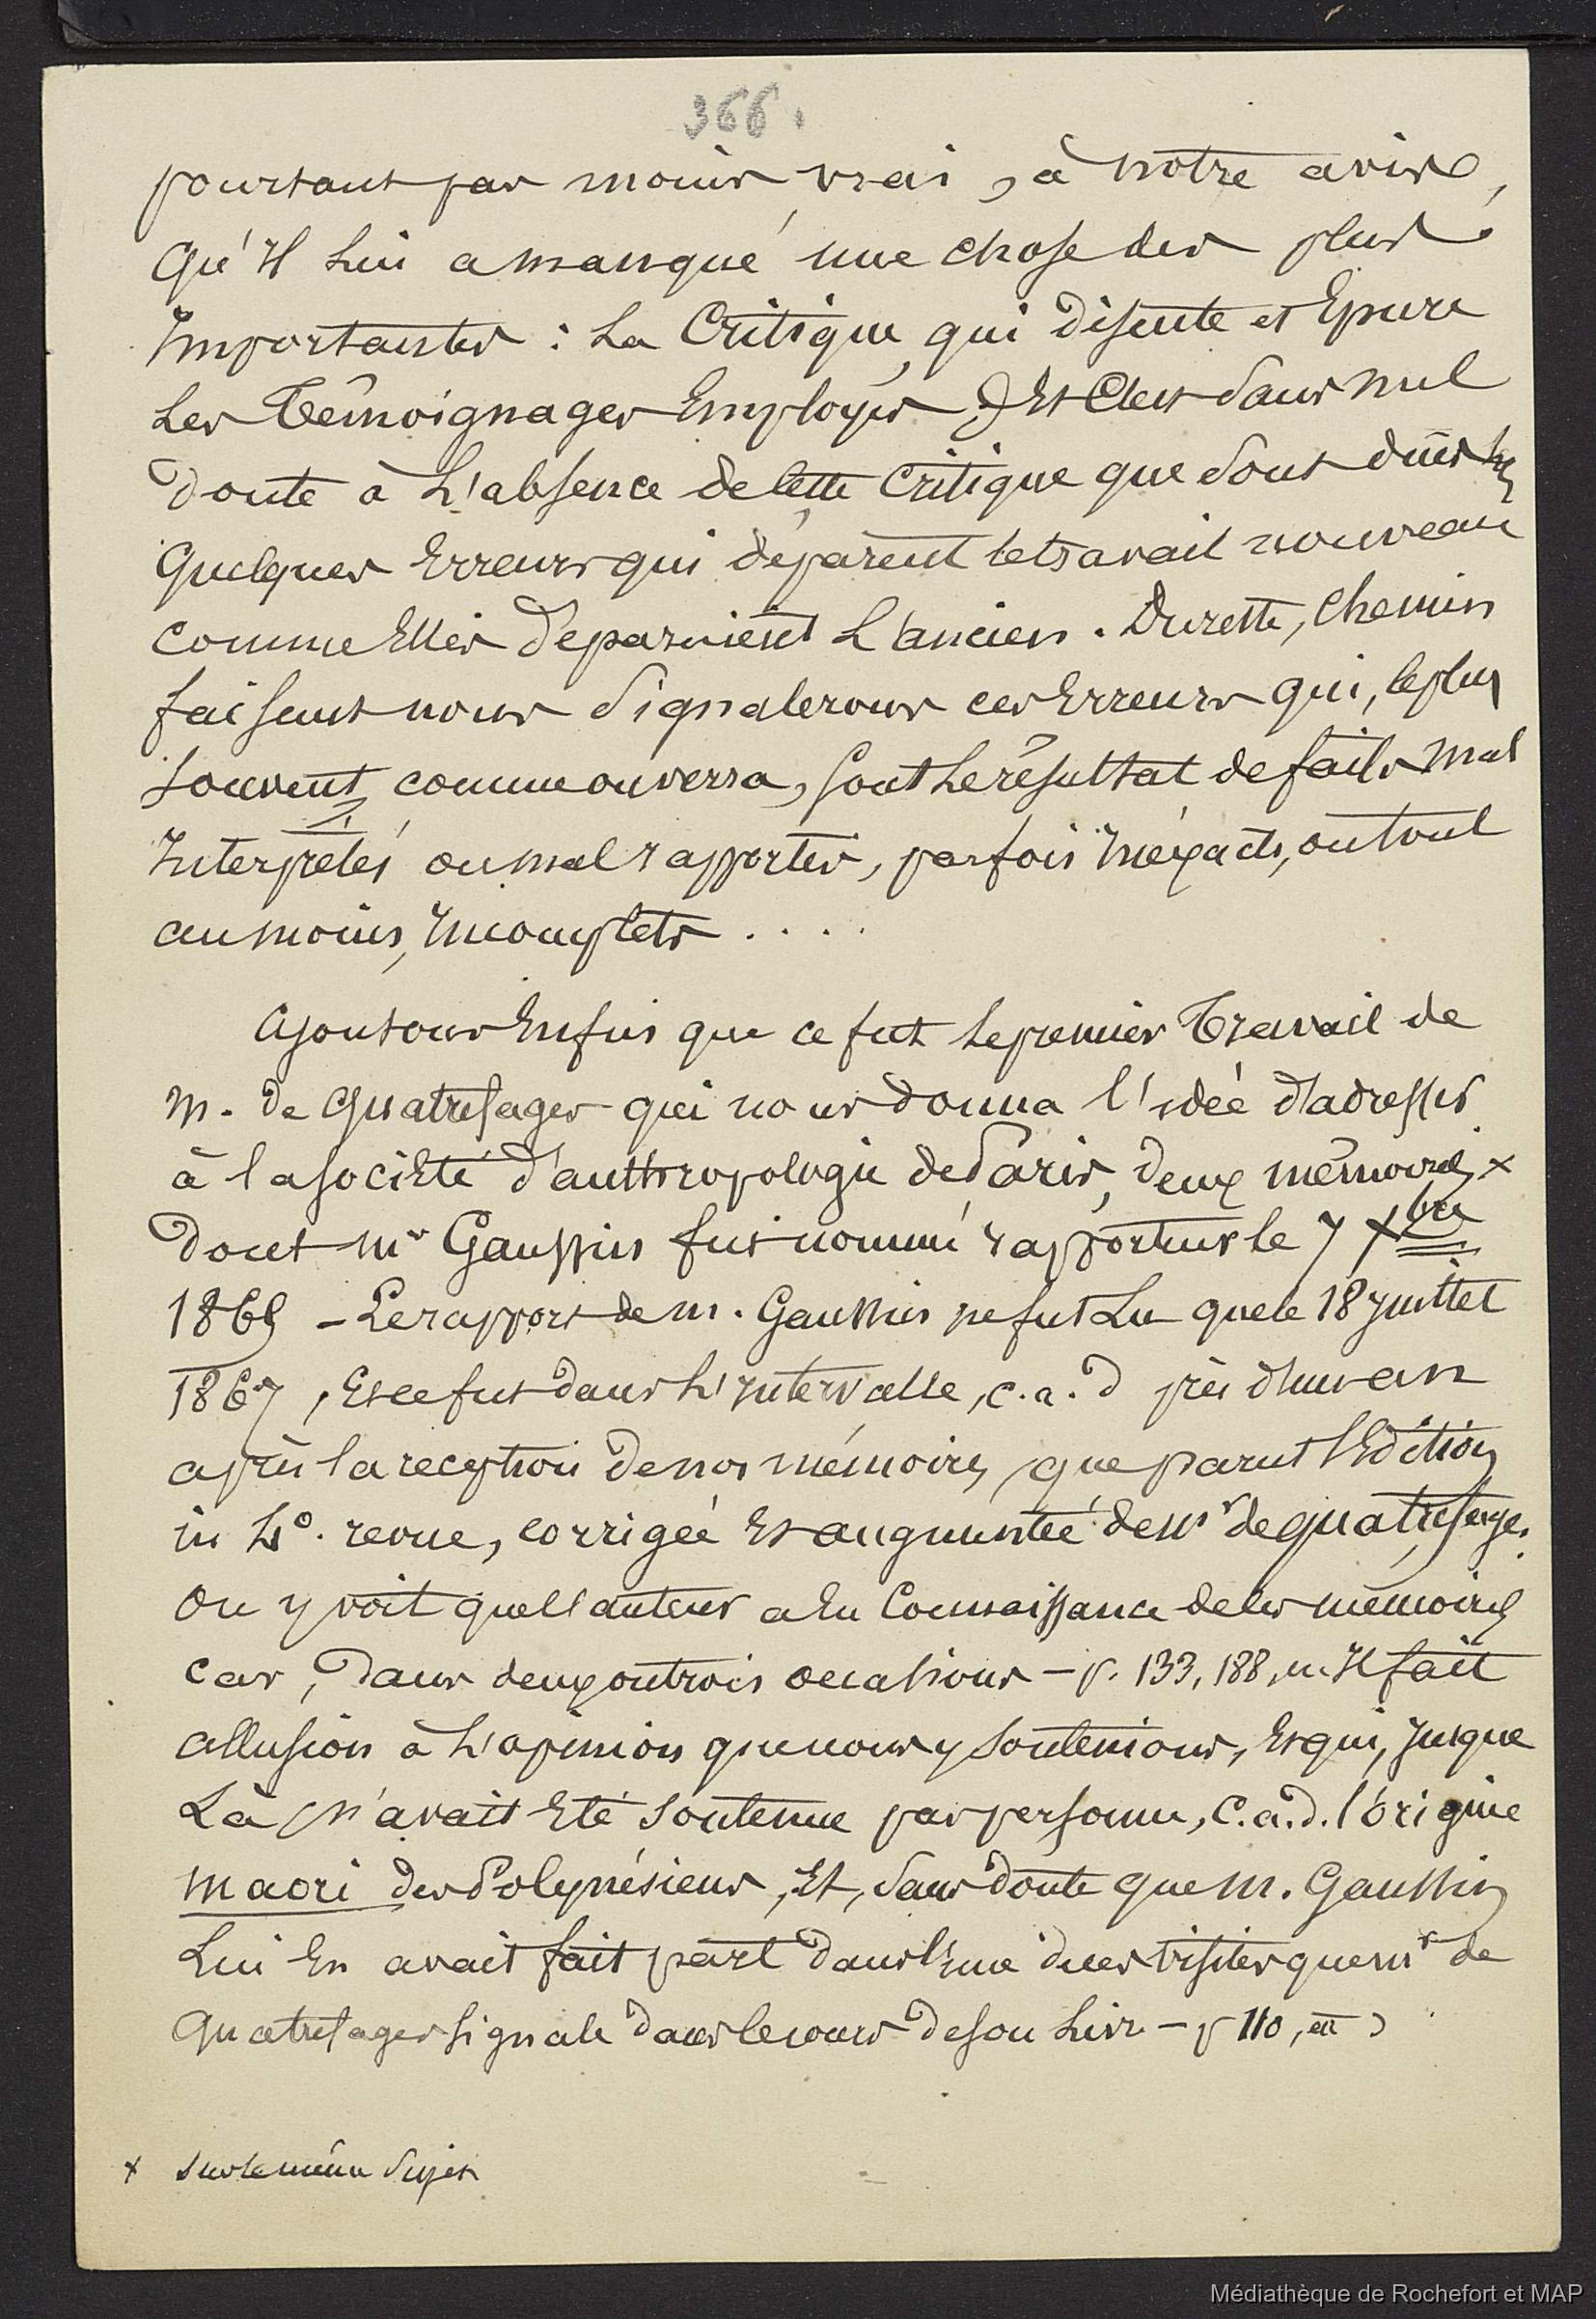 366.
pourtant pas moins vrai, à notre avis,
qu'Il Lui a manqué une chose des plus
Importantes : La Critique, qui discute et Epure
Les Témoignages Employés. Et C'est sans nul
doute à L'absence de cette Critique que sont dues les
quelques Erreurs qui déparent le travail nouveau
comme Elles déparaient L'ancien. Du reste, Chemin
faisant nous signalerons ces Erreurs qui, le plus
souvent, comme on verra, sont Le résultat de faits mal
Interprétés ou mal rapportés, parfois Inexacts, ou tout
au moins, Incomplets . . . .
Ajoutons Enfin que ce fut Le premier Travail de
M. de Quatrefages qui nous donna l'idée d'adresser
à la société d'anthropologie de Paris, deux mémoires x
dont Mr Gaussin fut nommé rapporteur le 7 Xbre
1865 - Le rapport de M. Gaussin ne fut Lu que le 18 Juillet
1867, Et ce fut dans L'Intervalle, c.a.d près d'un an
après la réception de nos mémoires, que parut l'Edition
in 4°. revue, corrigée Et augmentée de Mr de Quatrefages.
On y voit que l'auteur a Eu Connaissance de ces mémoires
car, dans deux ou trois occasions - p. 133, 188, Il fait
allusion à L'opinion que nous y soutenions, Et qui, Jusque
Là, n'avait Eté soutenue par personne, C.à.d. l'origine
maori des Polynésiens, Et, sans doute que M. Gaussin
Lui En avait fait part dans l'une des visites que Mr de
Quatrefages signale dans le cours de son Livre - p 110, etc
x sur le même sujet
Médiathèque de Rochefort et MAP